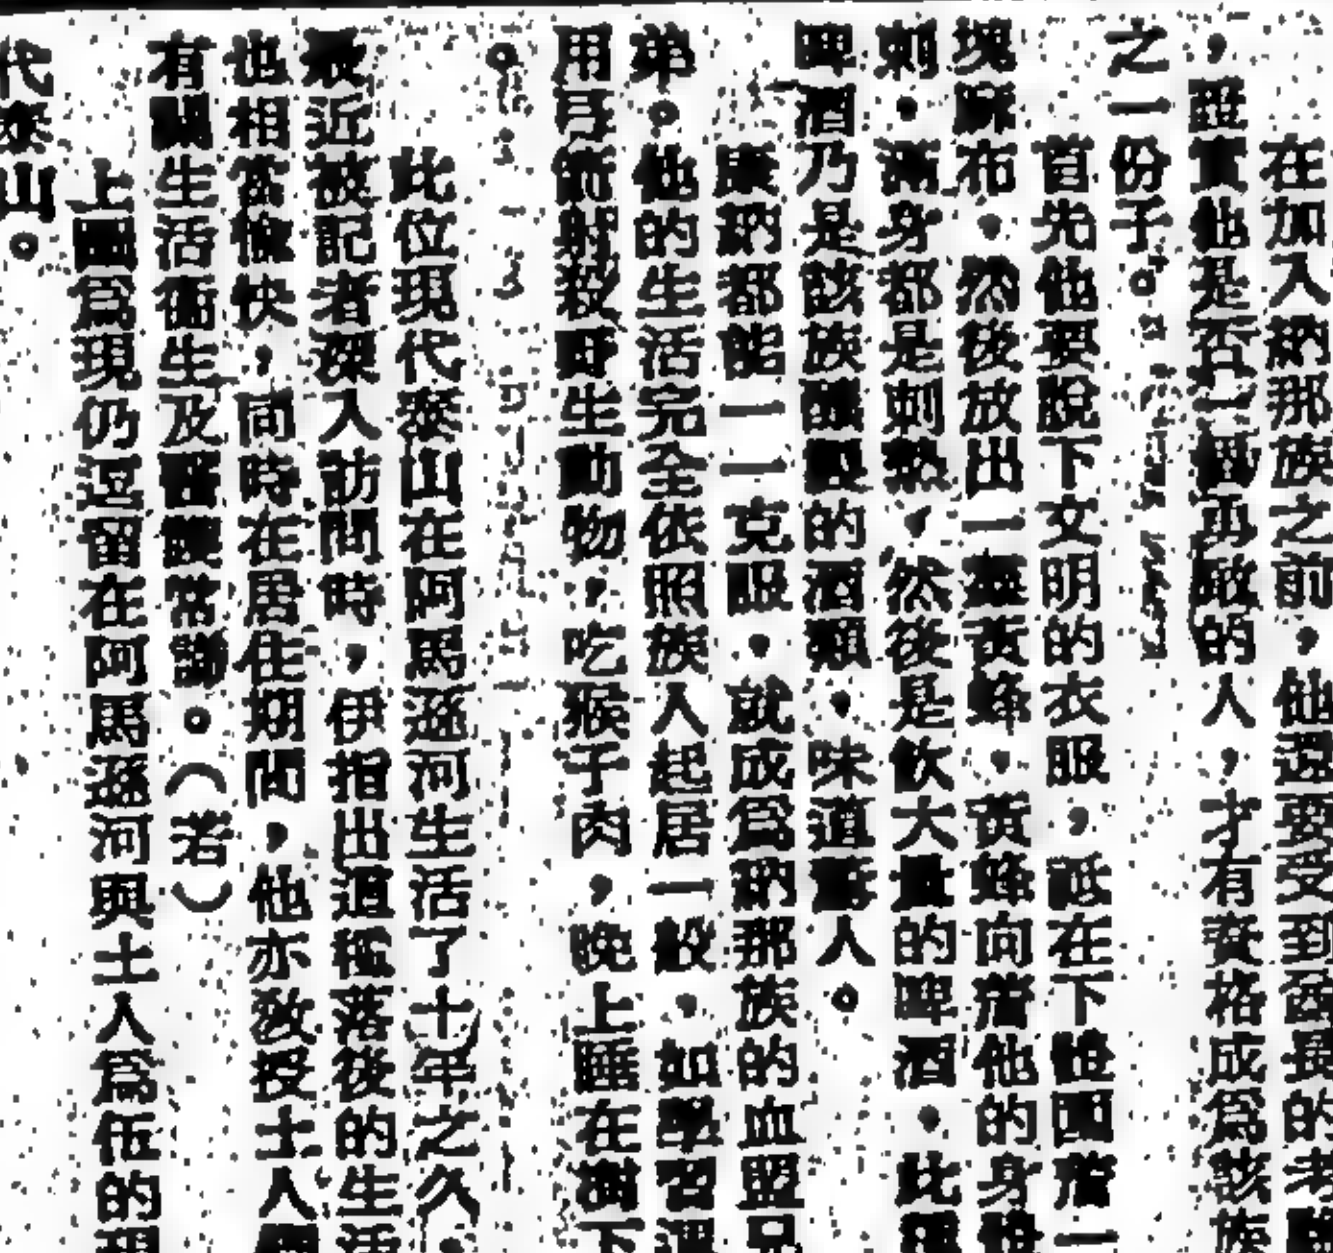 在加入納那族之前，他還要受到酋長的考
，證實他是否一個勇敢的人，才有資格成爲該族
之一份子。
首先他要脫下文明的衣服，祗在下體圍着一
塊麻布，然後放出一羣黃蜂，黃蜂向着他的身體
刺，滿身都是刺，然後是飲大量的啤酒，此
啤酒乃是該族釀製的酒類，味道人。
康納都能一一克服，就成爲納那族的血盟兄
弟。他的生活完全依照族人起居一般，如學習運
用弓箭射殺野生動物，吃猴子肉，晚上睡在樹下
。
此位現代泰山在阿馬遜河生活了十年之久，
最近被記者深入訪問時，伊指出這種落後的生活
也相當愉快，同時在居住期間，他亦敎授土人
有關生活衞生及醫療常識。（若）
上圖爲現仍逗留在阿馬遜河與土人爲伍的現
代泰山。